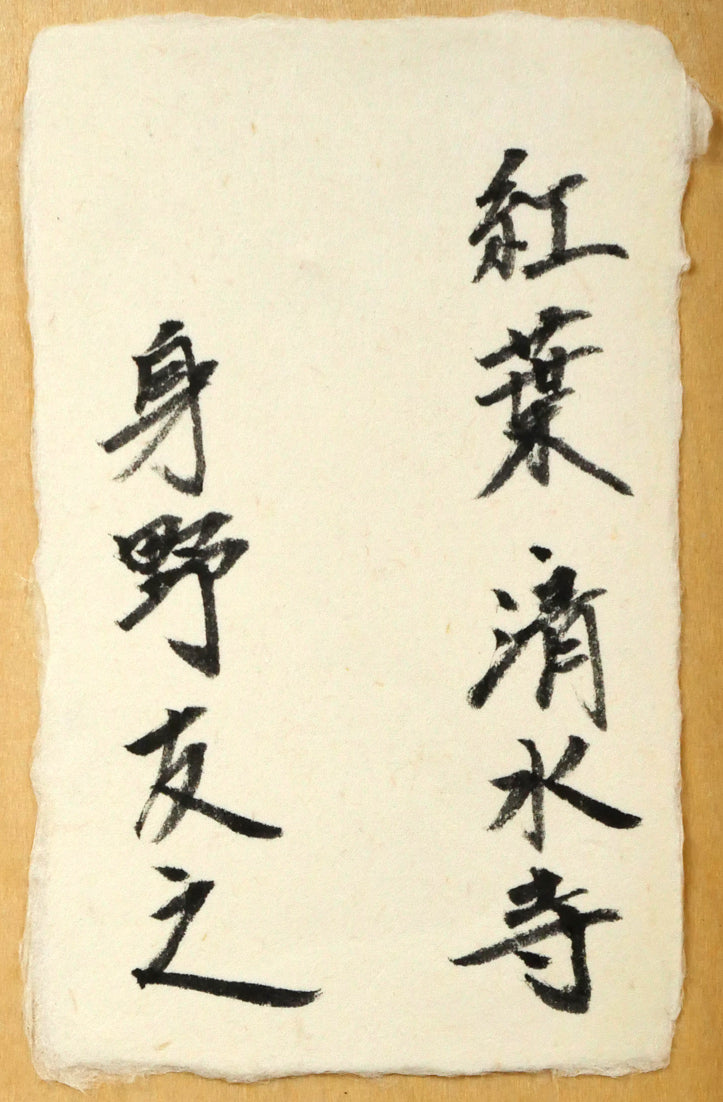 紅葉 清水寺
身野友之